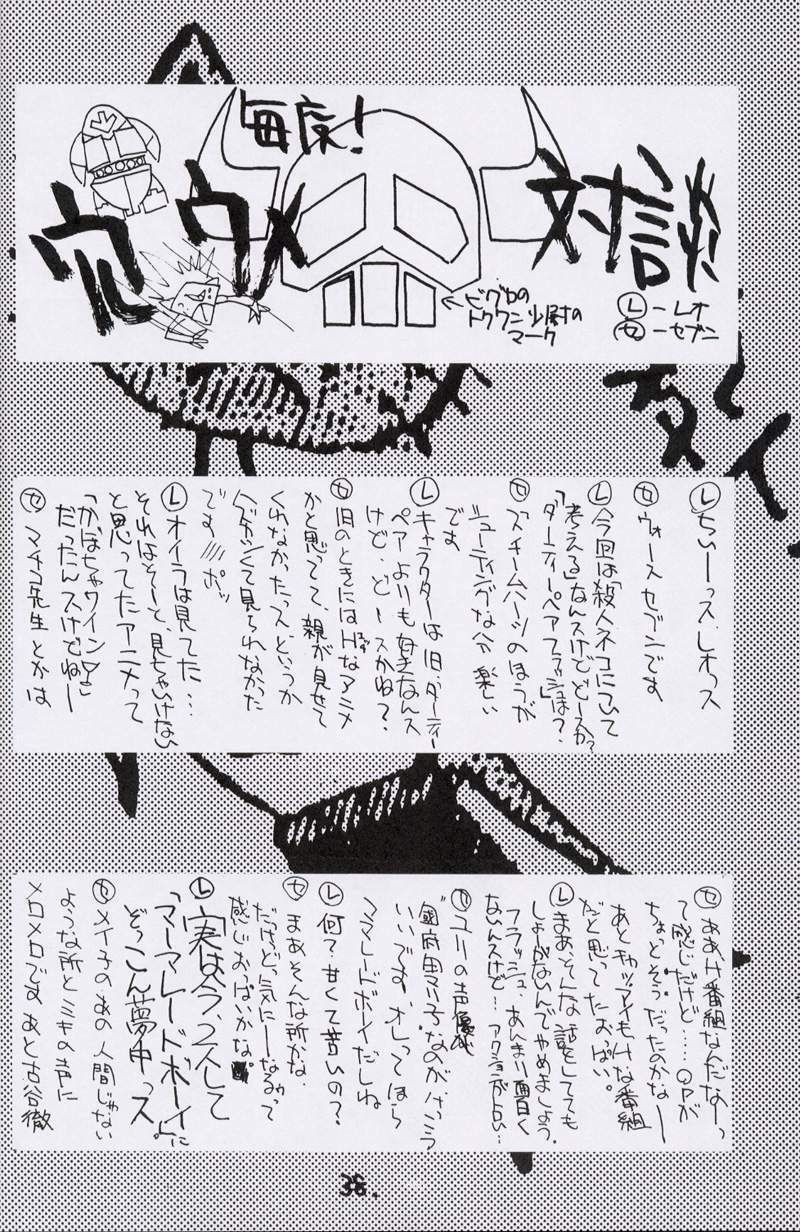 毎度!
穴ウメ
対談
←ビグロの
トクワン少尉の
マーク
Ⓛ-レオ
㋝-セブン
Ⓛちぃーっス、レオっス
㋝ウォースセブンです
Ⓛ今回は「殺人ネコについて
考える」なんスけどどースか?
「ダーティーペアフラッシュ」は?
㋝ズームハーツのほうが
シューティングな分楽しい
です
Ⓛキャラクターは旧、ダーティー
ペアよりも好きなんス
けど、どースかね?
㋝旧のときにはHなアニメ
かと思ってて、親が見せて
くれなかったっス、というか
ハズカシくて見られなかった
です///ポッ
Ⓛオイラは見てた…
それはそーと、見ちゃいけない
と思ってたアニメって
「かぼちゃワイン♡」
だったんスけどねー
㋝マチコ先生とかは
㋝ああH番組なんだなーっ
て感じだけど…OPが
ちょっとそうだったのかなー
あとキャッツアイもHな番組
だと思ってたおっぱい。
Ⓛまあ、そんな話をしてても
しょーがないんでやめましょう。
フラッシュ、あんまり面白く
ないんスけど…アクションが占い…
㋝ユリの声優が
"國府田マリ子"なのがけっこう
いいです、オレってほら
ママレードボイだしね
Ⓛ何?甘くて苦いの?
㋝まあそんな所かな、
だけど気にーなるぅって
感じおっぱいかな。
Ⓛ実は今、2人して
「ママレードボーイ」に
ぞっこん夢中っス
㋝メイ子のあの人間じゃない
ような所とミキの声に
メロメロです あと古谷徹
38.